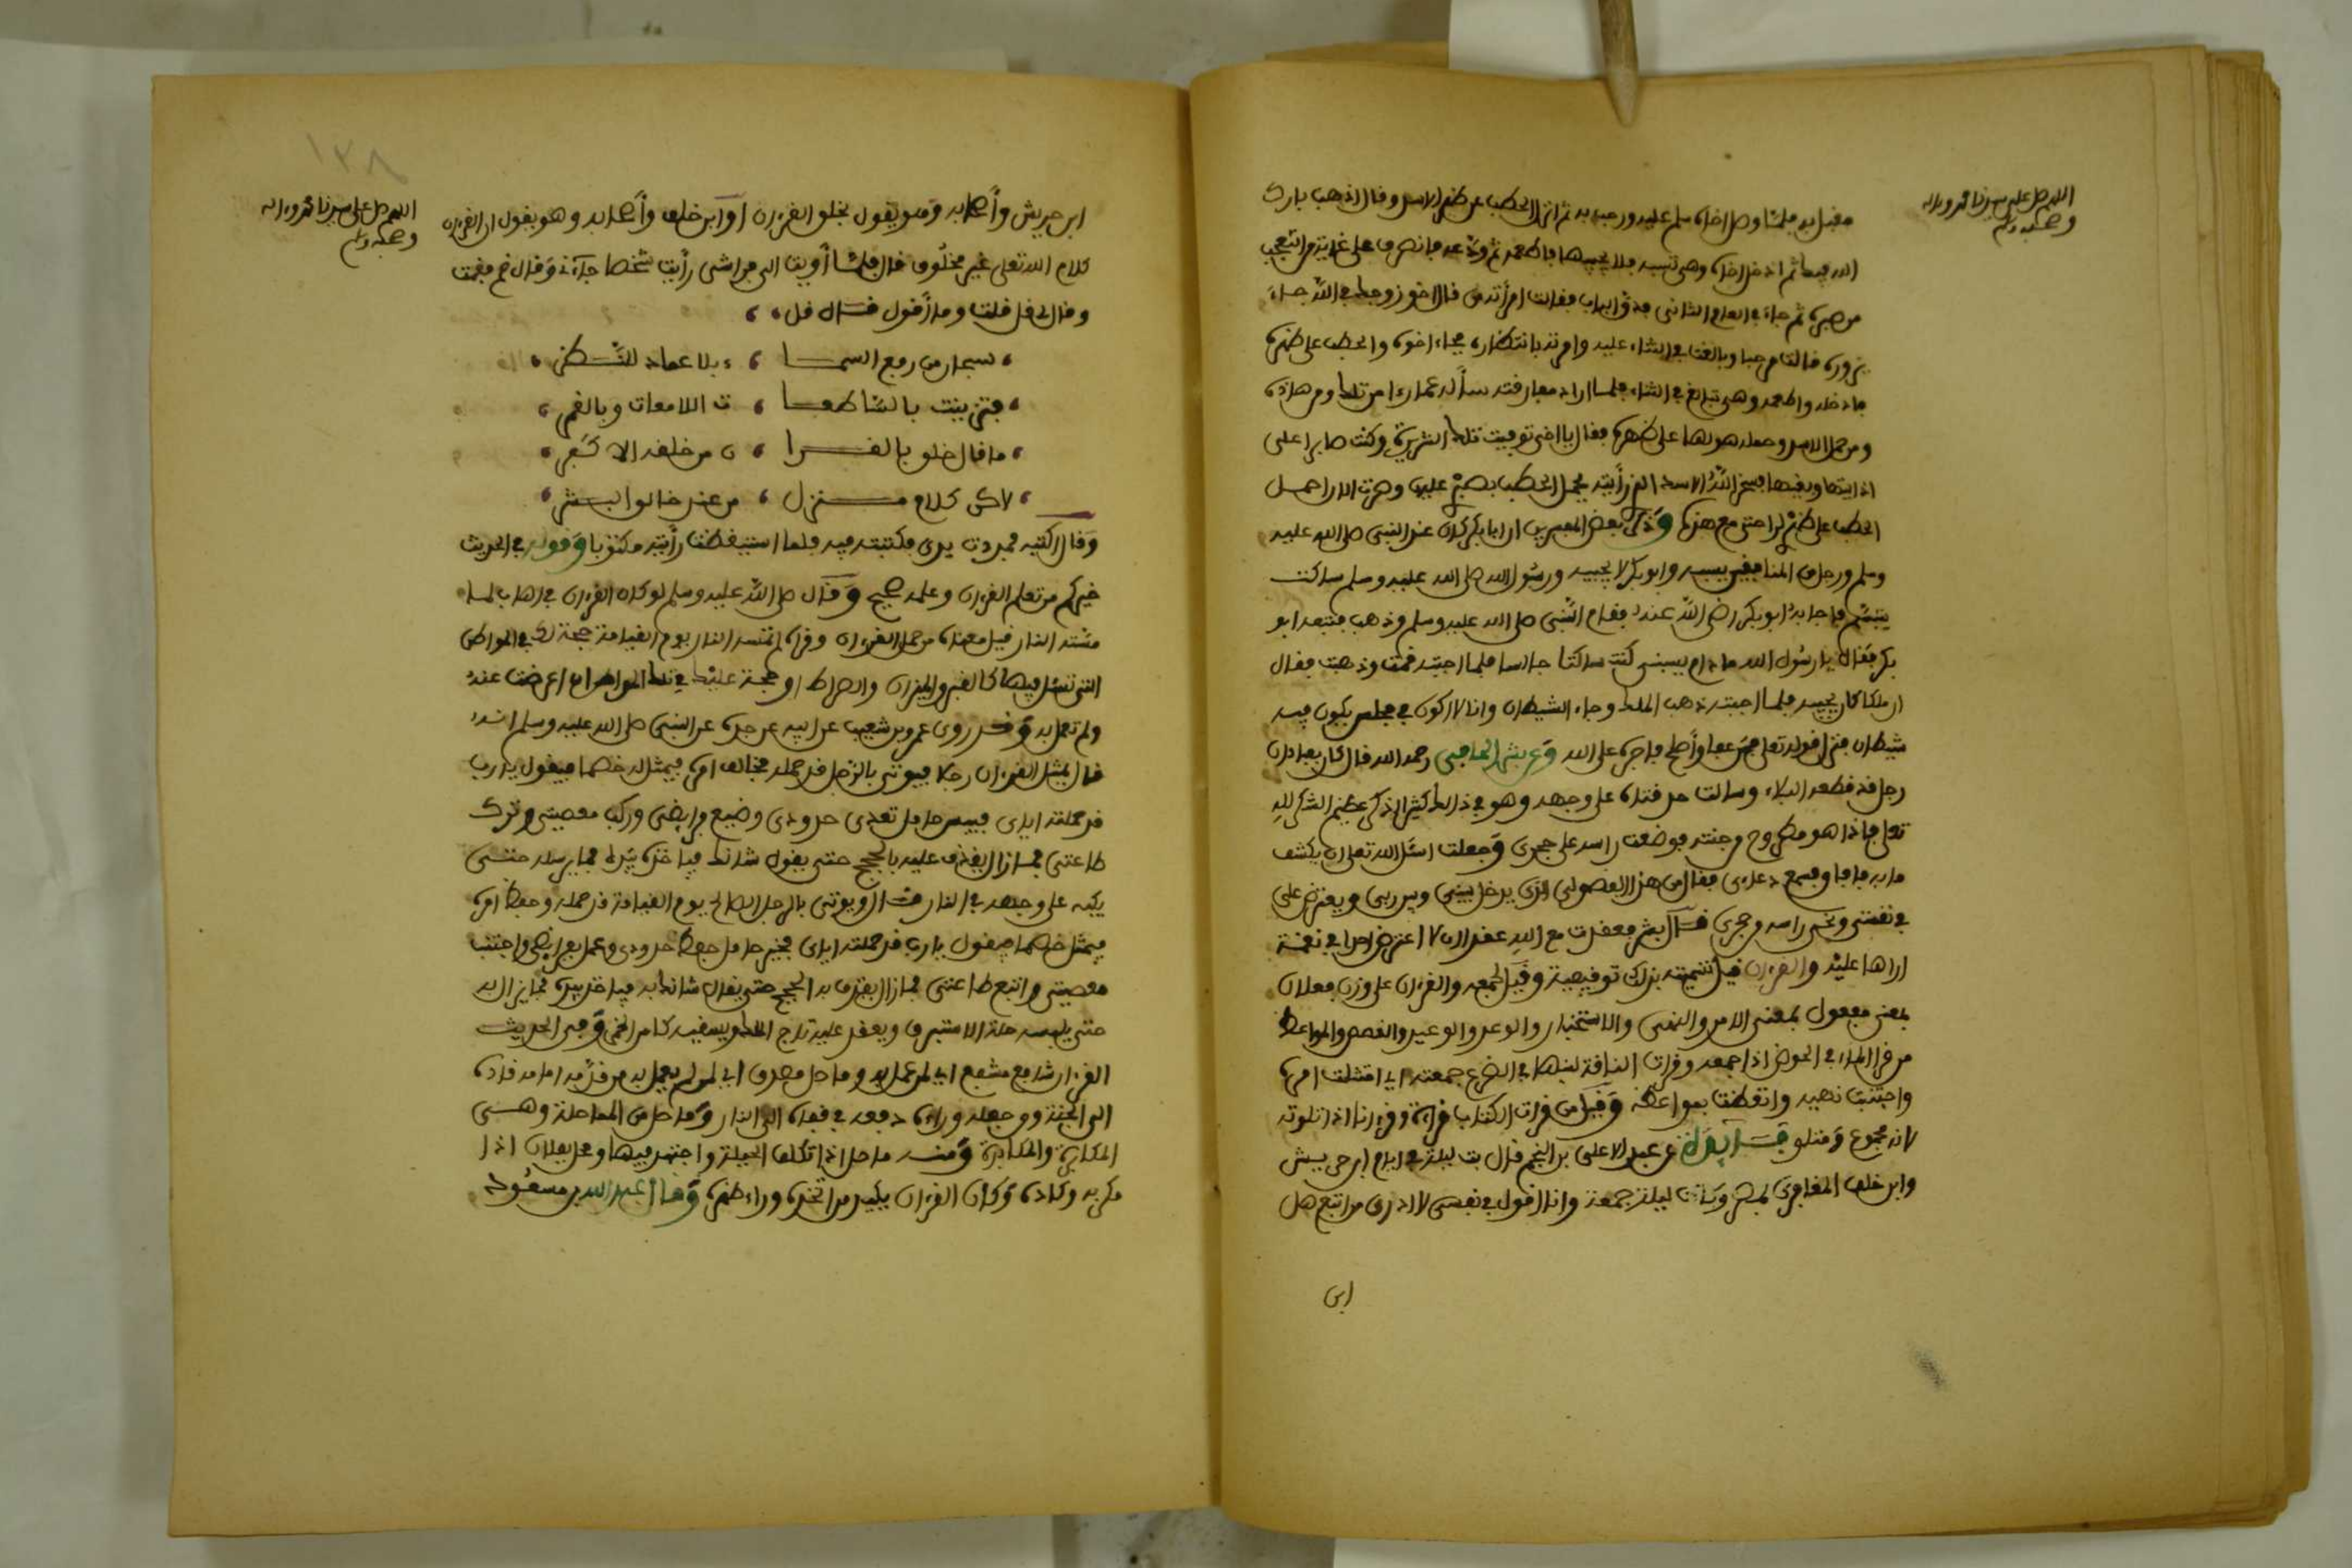 اللهم صل على سيدنا محمد وءاله
وصحبه وسلم
مقبل به فلما وصل اخاه سلم عليه ورحب به ثم انزل الحطب عن ظهر الاسد وقال اذهب بارك
الله فيك ثم ادخل اخاه وهي تسبه فلا يجيبها فاطعمه ثم ودعه فانصرف على غاية من التعجب
من صبره ثم جاء في العام الثاني فدق الباب فقالت امرأته من قال اخو زوجك في الله جاء
يزوره قالت مرحبا وبالغت في الثناء عليه وامرته بانتظاره فجاء اخوه والحطب على ظهره
فادخله واطعمه وهي تبالغ في الثناء فلما اراد مفارقته سأله عما رءا من تلك ومن هذه
ومن حمل الاسد وحمله هو لها على ظهره فقال يا اخي توفيت تلك الشريرة وكنت صابرا على
اذايتها وبغيها فسخر الله الاسد الذي رأيته يحمل الحطب بصبري عليها وصرت الان احمل
الحطب على ظهري لراحتي مع هذه وذكر بعض المعبرين ان ابا بكر كان عند النبي صلى الله عليه
وسلم ورجل من المنافقين يسبه وابو بكر لا يجيبه ورسول الله صلى الله عليه وسلم ساكت
يتبسم فاجابه ابو بكر رضي الله عنه فقام النبي صلى الله عليه وسلم وذهب فتبعه ابو
بكر فقال يا رسول الله ما دام يسبني كنت ساكتا جالسا فلما اجبته قمت وذهبت فقال
ان ملكا كان يجيبه فلما اجبته ذهب الملك وجاء الشيطان وانا لا اكون في مجلس يكون فيه
شيطان فنزل قوله تعلى فمن عفا وأصلح فاجره على الله وعن بشر الحافي رحمه الله قال كان بعبادان
رجل قد قطعه البلاء وسالت حدقتاه على وجهه وهو في ذلك كثير الذكر عظيم الشكر لله
تعلى فاذا هو مطروح من جنته فوضعت راسه على حجري وجعلت اسئل الله تعلى ان يكشف
ما به فافاق فسمع دعاءي فقال من هذا الفضولي الذي يدخل بيني وبين ربي ويعترض على
في نعمتي ونحى راسه من حجري قال بشر فعقدت مع الله عقدا ان لا اعترض احدا في نعمة
اراها عليه والقرءان قيل تسميته بذلك توقيفية وقيل لجمعه والقرءان على وزن فعلان
بمعنى مفعول بمعنى الامر والنهي والاستخبار والوعد والوعيد والقصص والمواعظ
من قرا الماء في الحوض اذا جمعه وقرات الناقة لبنها في الضرع جمعته اي امتثلت امره
واجتنبت نهيه واتعظت بمواعظه وقيل من قرات الكتاب قراءة وقرءانا اذا تلوته
لانه مجموع ومتلو فائدة عن عبد الاعلى بن النجم قال بت ليلة في ايام ابن حريش
وابن خلف المغافري بمصر وكانت ليلة جمعة وانا اقول في نفسي لا ادري من اتبع هل
ابن
١٣٨
اللهم صل على سيدنا محمد وءاله
وصحبه وسلم
ابن حريش وأصحابه وهو يقول بخلق القرءان او ابن خلف وأصحابه وهو يقول ان القرءان
كلام الله تعلى غير مخلوق قال فلما أويت الى فراشي رأيت شخصا جاءني وقال قم فقمت
وقال لي قل قلت وما أقول قال قل
سبحان من رفع السما ء بلا عماد للنظر
فتزينت بالساطعا ت اللامعات وبالقمر
ما قال خلق بالقرا ن من خلقه الا كفر
لاكن كلام منزل من عند خالق البشر
وقال اكتبه فمددت يدي فكتبته فيه فلما استيقظت رأيته مكتوبا وقوله في الحديث
خيركم من تعلم القرءان وعلمه صحيح وقال صلى الله عليه وسلم لو كان القرءان في اهاب لما
مسته النار قيل معناه من حمل القرءان وقراه لم تمسه النار يوم القيامة حجة لك في المواطن
التي تسئل فيها كالقبر والميزان والصراط او حجة عليك في تلك المواطن ان اعرضت عنه
ولم تعمل به وقد روى عمرو بن شعيب عن ابيه عن جده عن النبي صلى الله عليه وسلم انه
قال يمثل القرءان رجلا فيوتى بالرجل قد حمله مخالف امره فيمثل له خصما فيقول يا رب
قد حملته اياي فبيس حامل تعدى حدودي وضيع فرايضي وركب معصيتي وترك
طاعتي فما زال يقذف عليه بالحجج حتى يقول شانك فياخذه بيده فما يرسله حتى
يكبه على وجهه في النار قال ويوتى بالرجل الصالح يوم القيامة قد حمله وحفظ امره
فيمثل خصما فيقول يا رب قد حملته اياي فخير حامل حفظ حدودي وعمل بفرايضي واجتنب
معصيتي واتبع طاعتي فما زال يقذف به الحجج حتى يقال شانك به فياخذ بيده فما يزال به
حتى يلبسه حلة الاستبرق ويعقد عليه تاج الملك ويسقيه كاس الخمر وفي الحديث
القرءان شافع مشفع اي لمن عمل به وماحل مصدق اي لمن لم يعمل به من قدمه امامه قاده
الى الجنة ومن جعله وراءه دفعه في قفاه الى النار وماحل من المماحلة وهي
المكايدة والمكابرة ومنه ماحل اذا تكلف الحيلة واجتهد فيها ومحل بفلان اذا
مكر به وكاده وكان القرءان يكيد من اتخذه وراء ظهره وقال عبد الله بن مسعود